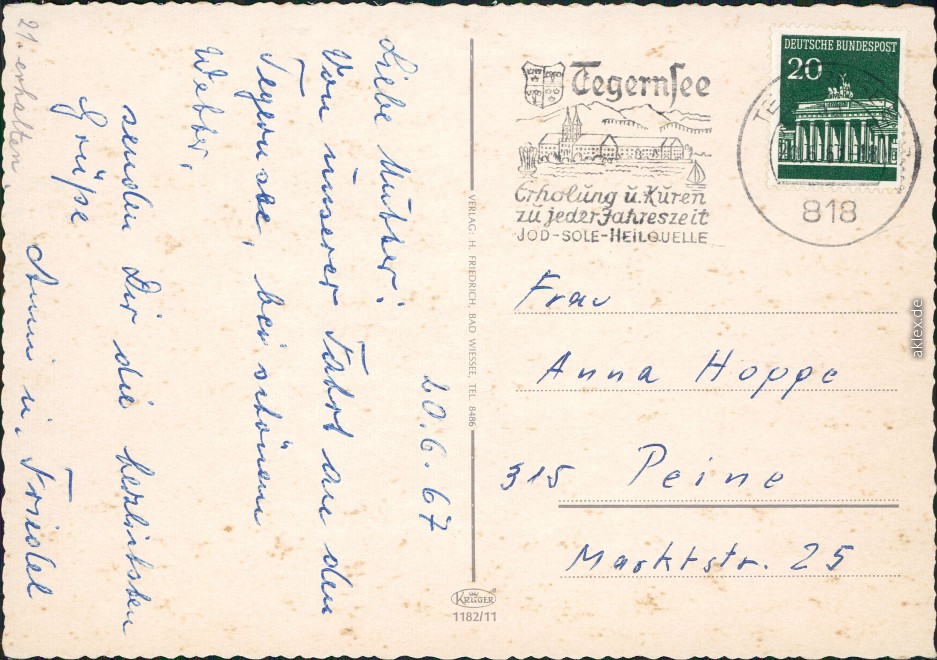 21. erhalten.
20.6.67
Liebe Mutter!
Von unserer Fahrt an den
Tegernsee, bei schönem
Wetter,
senden Dir die herzlichsten
Grüße
Anni u. Friedel
VERLAG: H. FRIEDRICH, BAD WIESSEE, TEL. 8486
KRÜGER
1182/11
Tegernsee
Erholung u. Kuren
zu jeder Jahreszeit
JOD-SOLE-HEILQUELLE
DEUTSCHE BUNDESPOST
20
818
Frau
Anna Hoppe
315 Peine
Marktstr. 25
aklex.de